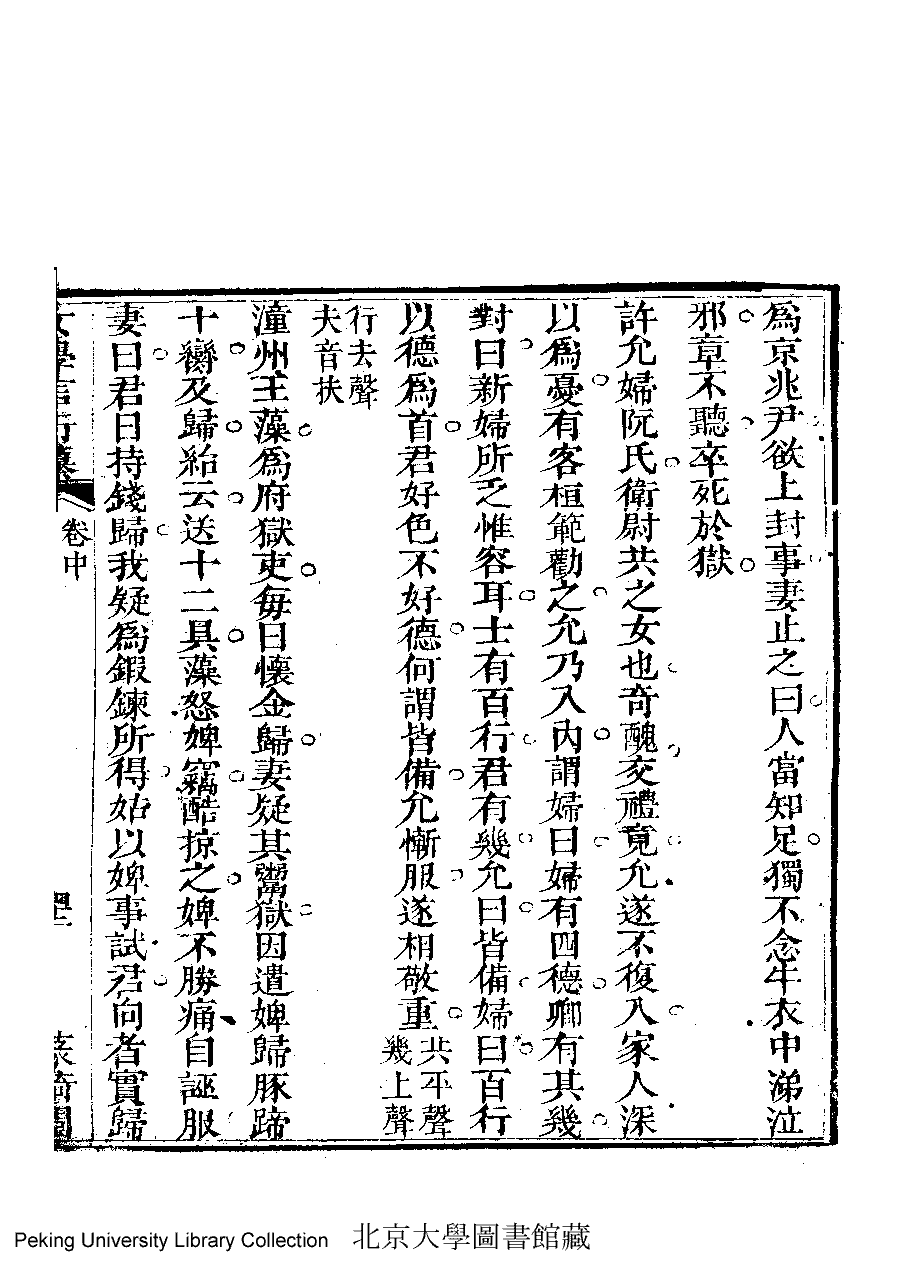 爲京兆尹欲上封事妻止之曰人當知足獨不念牛衣中涕泣
邪章不聽卒死於獄
許允婦阮氏衛尉共之女也奇醜交禮竟允遂不復入家人深
以爲憂有客桓範勸之允乃入內謂婦曰婦有四德卿有其幾
對曰新婦所乏惟容耳士有百行君有幾允曰皆備婦曰百行
以德爲首君好色不好德何謂皆備允慚服遂相敬重共平聲
幾上聲
行去聲
夫音扶
潼州王藻爲府獄吏每日懷金歸妻疑其鬻獄因遣婢歸豚蹄
十臠及歸紿云送十二具藻怒婢竊酷掠之婢不勝痛自誣服
妻曰君日持錢歸我疑爲鍛鍊所得姑以婢事試君向者實歸
女學言行纂
卷中
Peking University Library Collection 北京大學圖書館藏